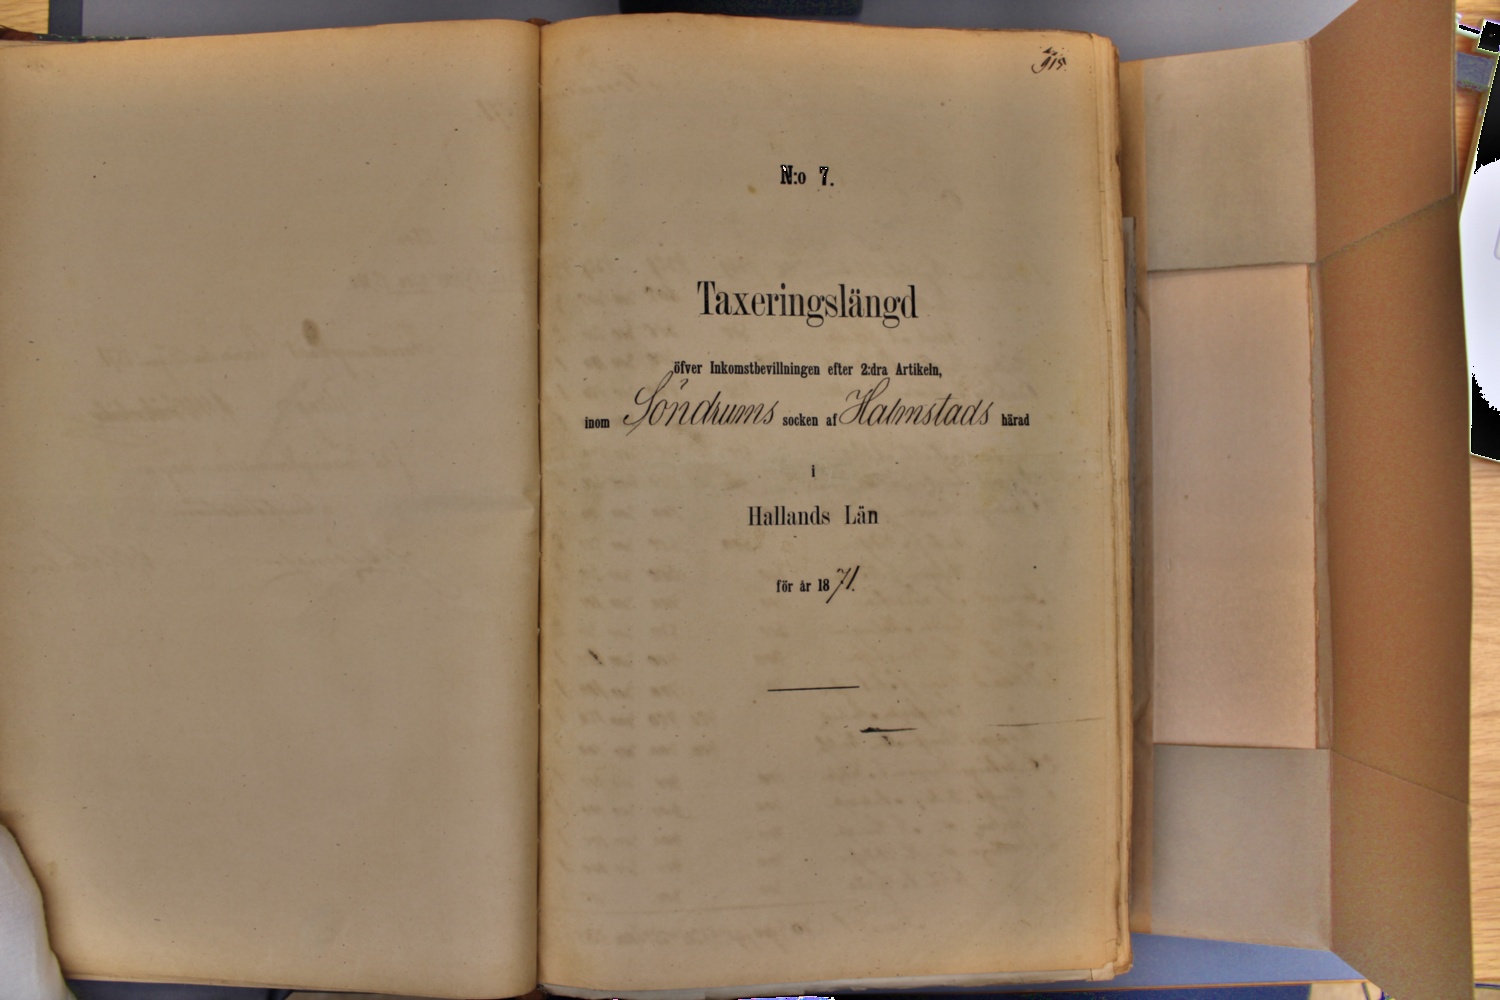 915.
N:o 7.
Taxeringslängd
öfver Inkomstbevillningen efter 2:dra Artikeln,
inom Söndrums socken af Halmstads härad
i
Hallands Län
för år 1871.